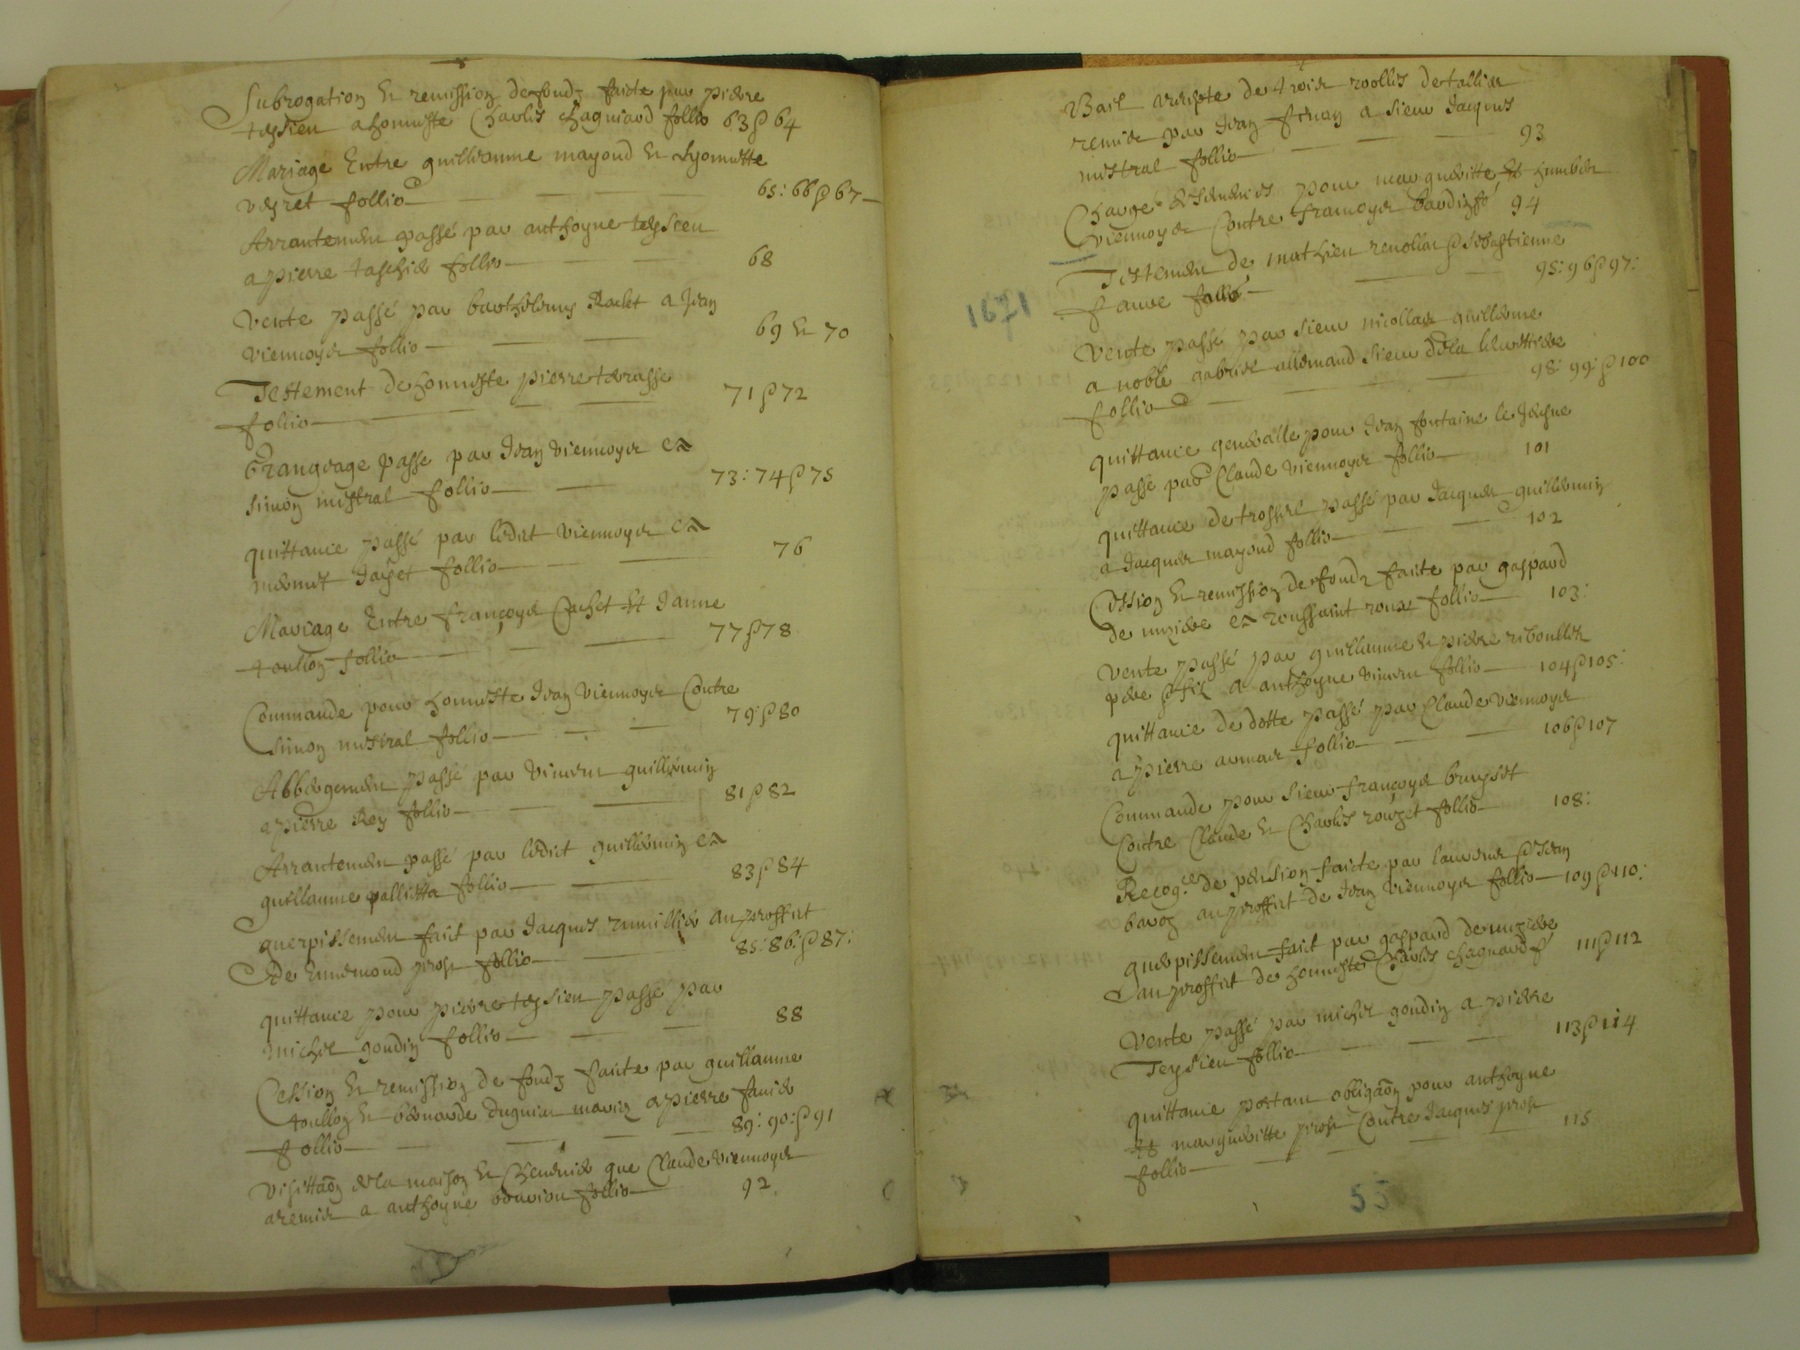 Subrogation et remission de fondz faicte par pierre
teysieu a honneste Charles Chagniard follio 63 & 64
Mariage Entre guillaume mayoud et Lyonnette
veyret follio 65: 66 & 67
Arrantement passé par anthoyne teysieu
a pierre follio 68
Vente passé par barthelemy Raclet a Jean
viennoys follio 69 et 70
Testement de honneste pierre terrasse
follio 71 & 72
Grangeage passe par Jean viennoys et a
simon mistral follio 73: 74 & 75
quittance passé par ledict viennoys et a
Jayet follio 76
Mariage Entre françoys Cachet Et Janne
toullon follio 77 & 78
Commande pour honneste Jean viennoys Contre
simon mistral follio 79: & 80
Abbergement passé par vincent guillermin
a pierre Rey follio 81 & 82
Arrantement passé par ledict guillermin et a
guillaume pallietta follio 83 & 84
guerpissement faict par Jacques rumillier au proffict
de Ennemond prost follio 85: 86: & 87:
quittance pour pierre teysieu passé par
michel goudin follio 88
Cession et remission de fondz faicte par guillaume
toullon et a pierre
follio 89: 90: & 91
visittaōn de la maison et que Claude viennoys
a remis a anthoyne follio 92
Bail de trois rolles de tallies
remis par Jean a sieur Jacques
mistral follio 93
Charge pour margueritte et humbert
viennoys Contre françoys 94
Testement de mathieu & sebastienne
faure follio 95: 96 & 97:
1671
Vente passé par sieur nicollas guillerme
a noble gabriel allemand sieur de la
follio 98: 99: & 100
quittance generalle pour Jean fontaine le Jeune
passé par Claude viennoys follio 101
quittance de passé par Jacques guillermin
a Jacques mayoud follio 102
Cession et remission de fondz faicte par gaspard
de muziere et a toussaint roux follio 103:
Vente passé par guillaume et pierre
pere & filz a anthoyne vincent follio 104 & 105:
quittance de dotte passé par Claude viennoys
a pierre follio 106 & 107
Commande pour sieur françoys bruyset
Contre Claude et Charles rouget follio 108:
Recog.ce de pension faicte par laurens & Jean
baron au proffict de Jean viennoys follio 109 & 110:
guerpissement faict par gaspard de muziere
au proffict de honneste Charles Chagniard f° 111 & 112
Vente passé par michel goudin a pierre
Teysieu follio 113 & 114
quittance portant obligaōn pour anthoyne
et margueritte prost Contre Jacques prost
follio 115
55